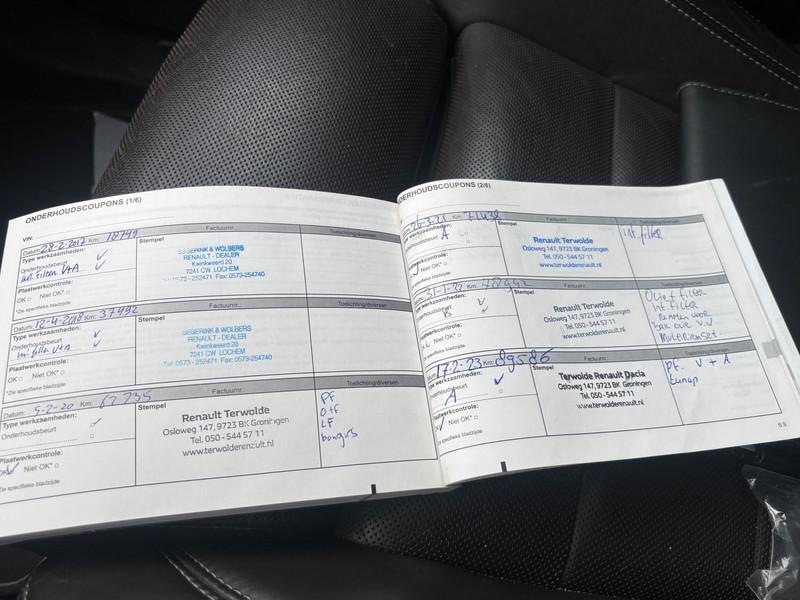 ONDERHOUDSCOUPONS (1/6)
VIN:
Factuurnr.:
Datum: 28-2-2017 Km: 18799
Stempel
Toelichting/diversen
Type werkzaamheden:
Onderhoudsbeurt
int. filter V+A
Plaatwerkcontrole:
OK □ Niet OK* □
*Zie specifieke bladzijde
SEGERINK & WOLBERS
RENAULT - DEALER
Kwinkweerd 20
7241 CW LOCHEM
0573-252471 Fax: 0573-254740
Factuurnr.:
Datum: 12-4-2018 Km: 37492
Stempel
Toelichting/diversen
Type werkzaamheden:
Onderhoudsbeurt
Plaatwerkcontrole:
OK □ Niet OK* □
*Zie specifieke bladzijde
SEGERINK & WOLBERS
RENAULT - DEALER
Kwinkweerd 20
7241 CW LOCHEM
Tel: 0573-252471 Fax: 0573-254740
Factuurnr.:
Datum: 5-2-20 Km: 62735
Stempel
Toelichting/diversen
Type werkzaamheden:
Onderhoudsbeurt
Plaatwerkcontrole:
OK Niet OK* □
*Zie specifieke bladzijde
Renault Terwolde
Osloweg 147, 9723 BK Groningen
Tel. 050 - 544 57 11
www.terwolderenault.nl
PF
OF
LF
bougies
ONDERHOUDSCOUPONS (2/6)
Factuurnr.:
Datum: 26-3-21 Km: 71438
Stempel
Toelichting/diversen
Type werkzaamheden:
Onderhoudsbeurt
A
Plaatwerkcontrole:
Niet OK* □
*Zie specifieke bladzijde
Renault Terwolde
Osloweg 147, 9723 BK Groningen
Tel. 050 - 544 57 11
www.terwolderenault.nl
int. filter
Factuurnr.:
31-1-22 Km: 78992
Stempel
Toelichting/diversen
Type werkzaamheden:
Onderhoudsbeurt
B
Plaatwerkcontrole:
Niet OK* □
*Zie specifieke bladzijde
Renault Terwolde
Osloweg 147, 9723 BK Groningen
Tel. 050 - 544 57 11
www.terwolderenault.nl
Olie filter
int filter
Remmen voor
V.V
Multiriem set.
Factuurnr.:
Datum: 17-2-23 Km: 89586
Stempel
Toelichting/diversen
Type werkzaamheden:
Onderhoudsbeurt
A
Plaatwerkcontrole:
Niet OK* □
*Zie specifieke bladzijde
Terwolde Renault Dacia
Osloweg 147, 9723 BK Groningen
Tel. 050 - 544 57 11
www.terwolderenault.nl
pf. V + A
tunap
6.9